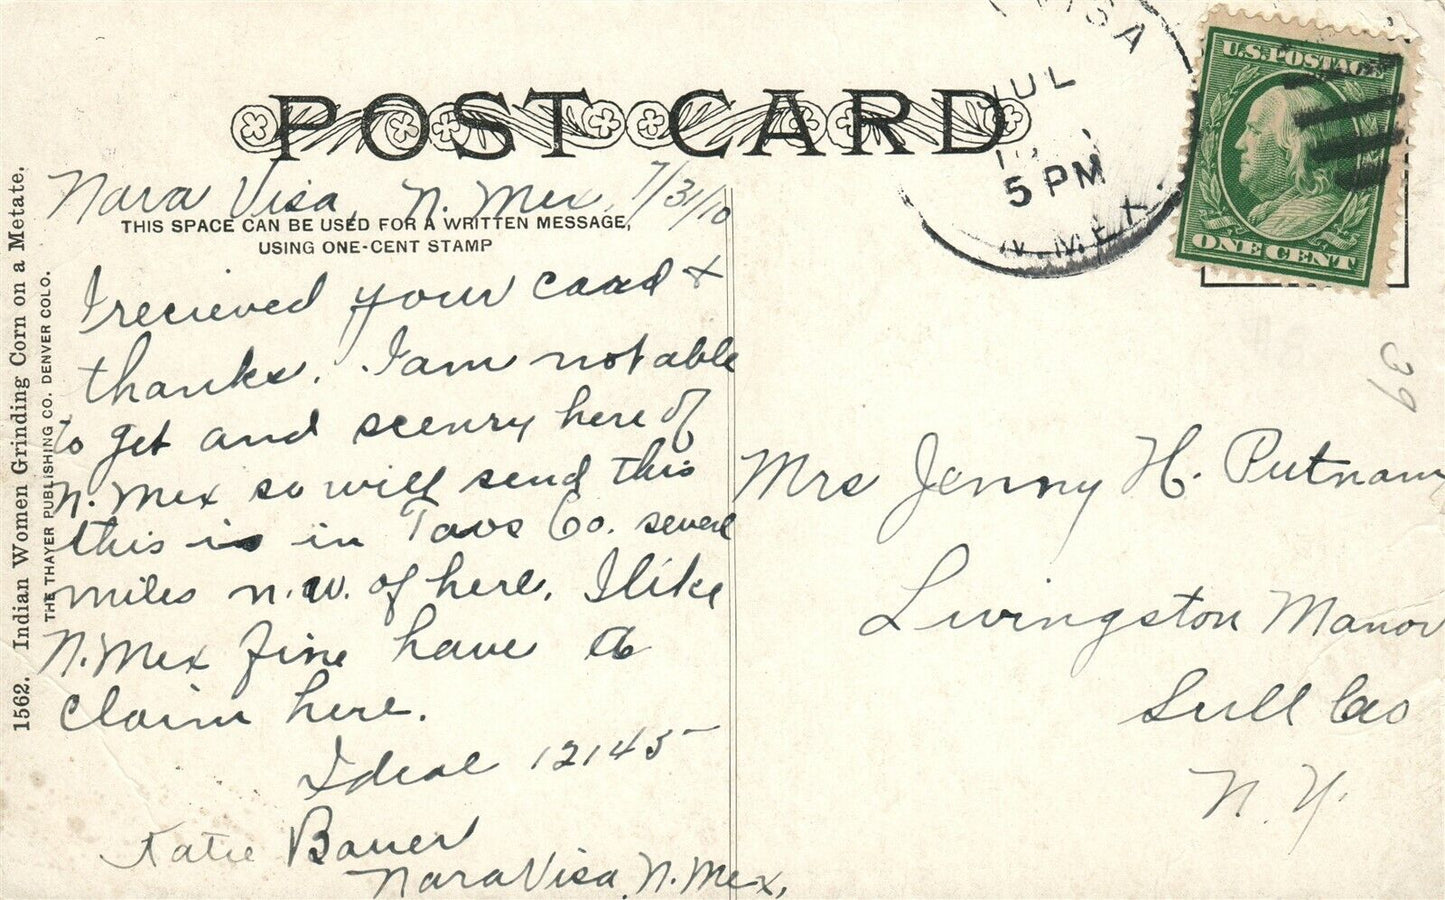 POST CARD
Nara Visa, N. Mex, 7/31/10
THIS SPACE CAN BE USED FOR A WRITTEN MESSAGE,
USING ONE-CENT STAMP
I recieved your card &
thanks. I am not able
to get and scenry here of
N. Mex so will send this
this is in Taos Co. severl
miles n.w. of here. I like
N. Mex fine have a
claim here.
Ideal 12145
Katie Bauer
Nara Visa, N. Mex,
1562. Indian Women Grinding Corn on a Metate.
THE THAYER PUBLISHING CO. DENVER COLO.
VISA
JUL
5 PM
N. MEX.
U.S. POSTAGE
ONE CENT
39
Mrs Jenny H. Putnam
Livingston Manor
Sull Co
N. Y.